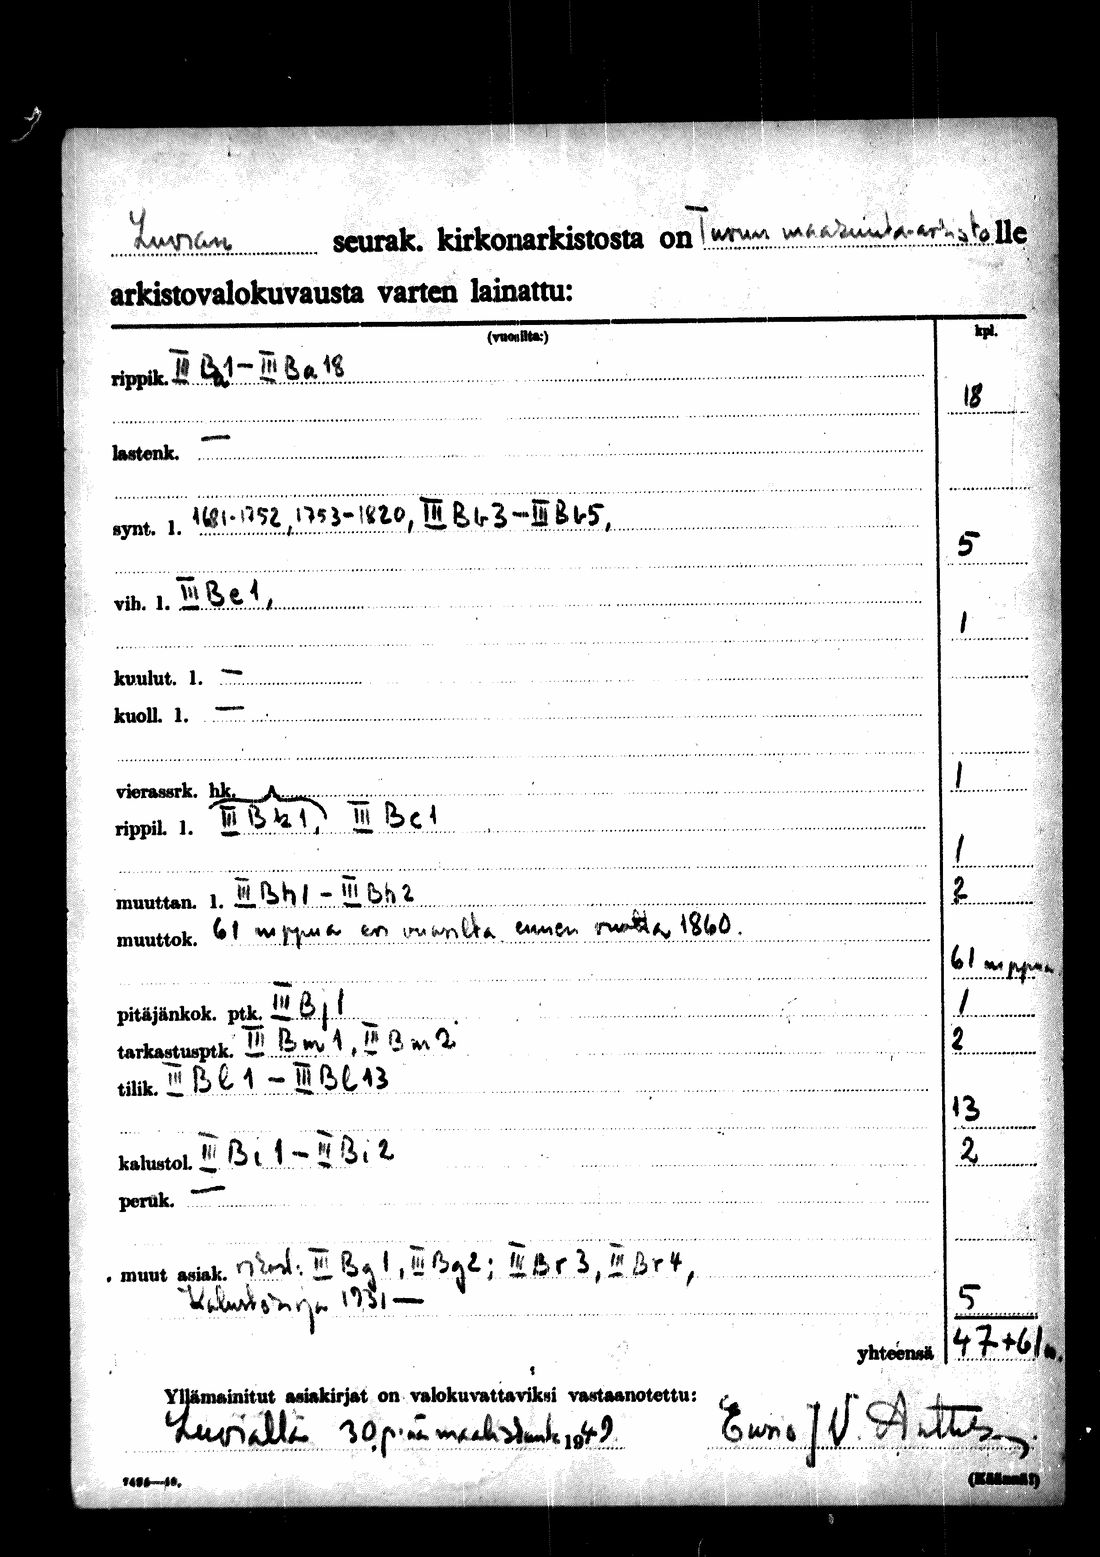 Luvian seurak. kirkonarkistosta on Turun maakunta-arkistolle
arkistovalokuvausta varten lainattu:
(vuosilta:) kpl.
rippik. III Ba1 – III Ba 18
18
lastenk. —
synt. l. 1681-1752, 1753-1820, III Bb3 – III Bb5,
5
vih. l. III Be1,
1
kuulut. l. —
kuoll. l. —
vierassrk. hk. 1
rippil. l. III Bk1, III Bc1
1
muuttan. l. III Bh1 – III Bh2 2
muuttok. 61 nippua eri vuosilta ennen vuotta 1860.
61 nippua
pitäjänkok. ptk. III Bj1 1
tarkastusptk. III Bm1, III Bm2 2
tilik. III Bl1 – III Bl13
13
kalustol. III Bi1 – III Bi2 2
peruk. —
muut asiak. III Bg1, III Bg2; III Br3, III Br4,
Kalustokirja 1731— 5
yhteensä 47+61 n.
Yllämainitut asiakirjat on valokuvattaviksi vastaanotettu:
Luvialla 30 p:nä maalisk. 1949. V.
7495—48. (Käännä!)